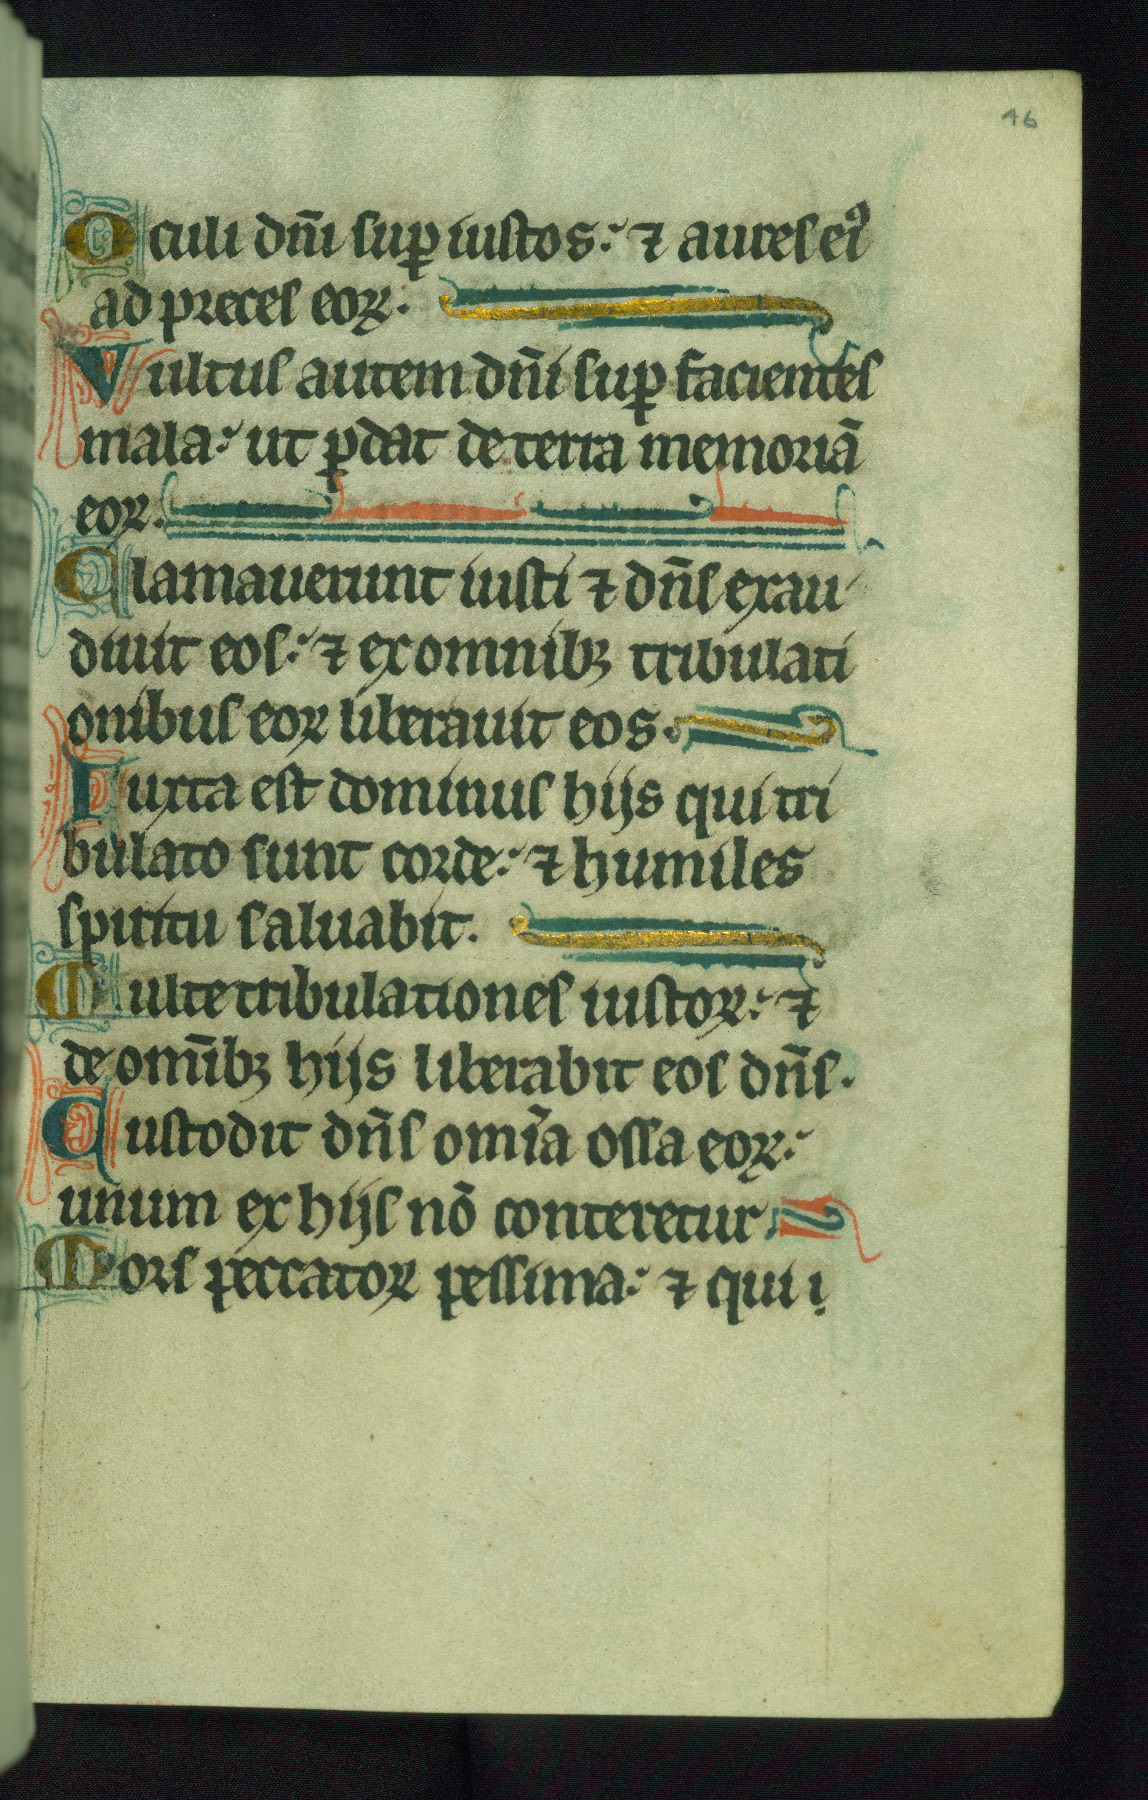 46
Oculi dn̄i sup̱ iustos: ⁊ aures eiꝰ
ad preces eoꝝ.
Vultus autem dn̄i sup̱ facientes
mala: ut ꝑdat de terra memoriā
eoꝝ.
Clamauerunt iusti ⁊ dn̄s exau
diuit eos: ⁊ ex omnibꝫ tribulati
onibus eoꝝ liberauit eos.
Iuxta est dominus hijs qui tri
bulato sunt corde: ⁊ humiles
spiritu saluabit.
Multe tribulationes iustoꝝ: ⁊
de omībꝫ hijs liberabit eos dn̄s.
Custodit dn̄s omīa ossa eoꝝ:
unum ex hijs nō conteretur.
Mors peccatoꝝ pessima: ⁊ qui i